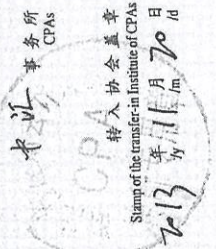 事务所
CPAs
转入协会盖章
Stamp of the transfer-in Institute of CPAs
2013 年 11 月 20 日
/y /m /d
CPA